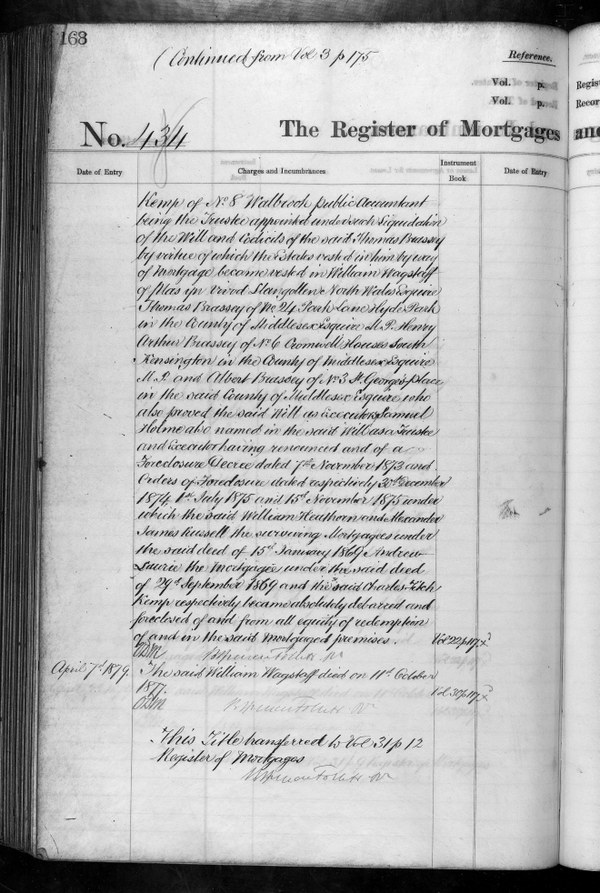 168
(Continued from Vol 3 p 175
Reference.
Vol. p.
Vol. p.
No. 434
The Register of Mortgages and
Regist
Recor
Date of Entry
Charges and Incumbrances
Instrument
Book
Date of Entry
Kemp of No 8 Walbrook public Accountant
being the Trustee appointed under such Liquidation
of the Will and Codicils of the said Thomas Brassey
by virtue of which the Estates vested in him by way
of Mortgage became vested in William Wagstaff
of Plas yn Vivod Llangollen North Wales Esquire
Thomas Brassey of No 24 Park Lane Hyde Park
in the County of Middlesex Esquire M.P. Henry
Arthur Brassey of No 6 Cromwell Houses South
Kensington in the County of Middlesex Esquire
M.P. and Albert Brassey of No 3 St Georges place
in the said County of Middlesex Esquire who
also proved the said Will as Executors Samuel
Holme also named in the said Will as a Trustee
and Executor having renounced and of a
Foreclosure Decree dated 7th November 1873 and
Orders of Foreclosure dated respectively December
1874 1st July 1875 and 15th November 1875 under
which the said William Heathorn and Alexander
James Russell the surviving Mortgagees under
the said deed of 15th January 1869 Andrew
Laurie the Mortgagee under the said deed
of 29th September 1869 and the said Charles Fitch
Kemp respectively became absolutely debarred and
foreclosed of and from all equity of redemption
of and in the said Mortgaged premises. Vol 22 p 117
April 7th 1879. The said William Wagstaff died on 11th October
1877. Vol 30 p 117
This Title transferred to Vol 31 p 12
Register of Mortgages